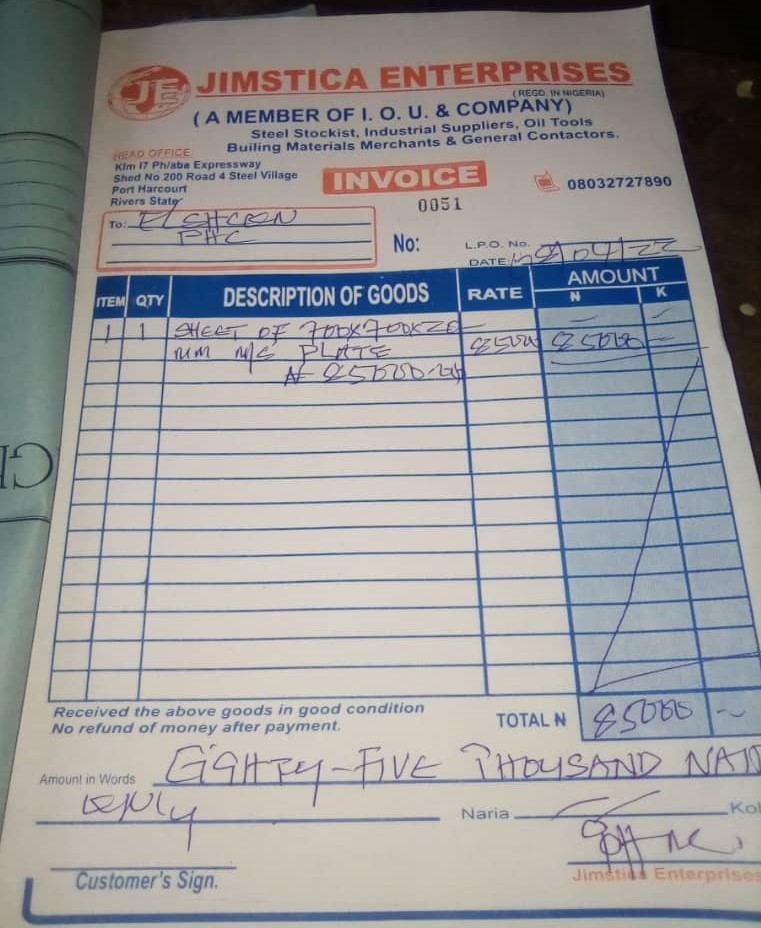 JF
JIMSTICA ENTERPRISES
(REGD. IN NIGERIA)
(A MEMBER OF I. O. U. & COMPANY)
Steel Stockist, Industrial Suppliers, Oil Tools
Builing Materials Merchants & General Contactors.
HEAD OFFICE
Klm 17 Ph/aba Expressway
Shed No 200 Road 4 Steel Village
Port Harcourt
Rivers State
INVOICE
08032727890
0051
To: ELSHCRON
PHC
No:
L.P.O. No.
DATE: /04/22
ITEM QTY DESCRIPTION OF GOODS RATE AMOUNT
N K
1 1 SHEET OF 700X700X20
MM M/S PLATE 85000 85000 =
N 85000
Received the above goods in good condition
No refund of money after payment.
TOTAL N 85000 -
Amount in Words EIGHTY-FIVE THOUSAND NAI
only Naria Ko
Customer's Sign.
Jimstica Enterprises